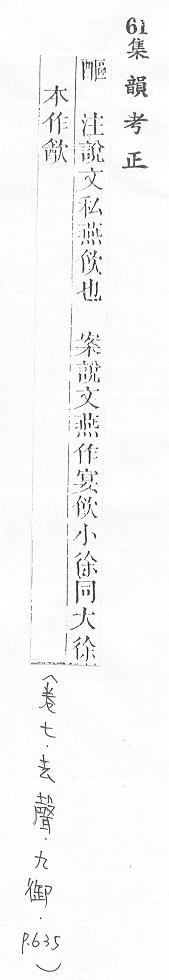 61集韻考正
䣱 注說文私燕飮也 案說文燕作宴飮小徐同大徐
本作㱃
(卷七.去聲.九御.P.635)